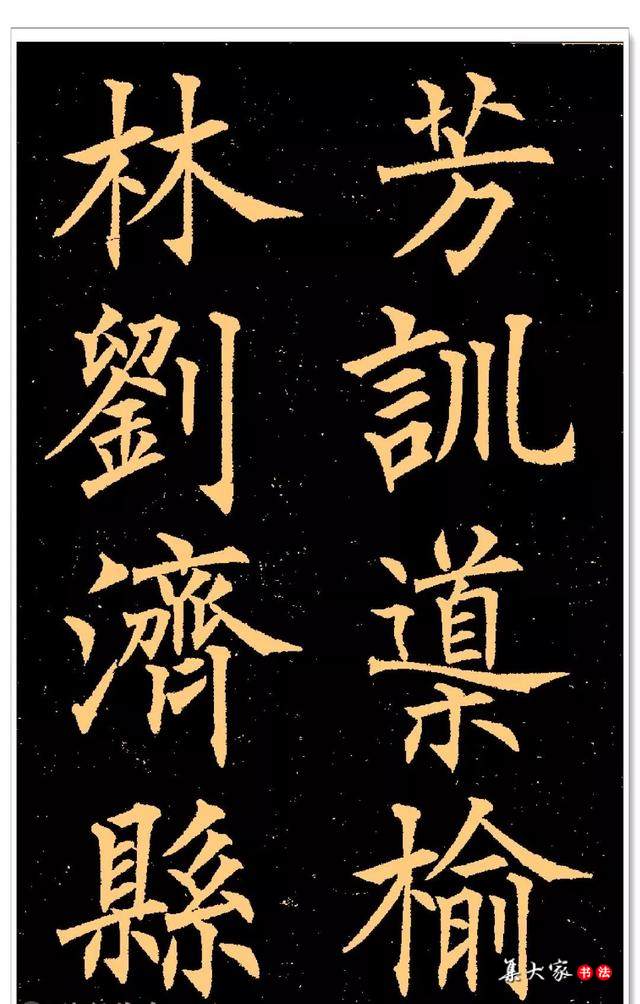 芳訓導榆
林劉濟縣
集大家 书法